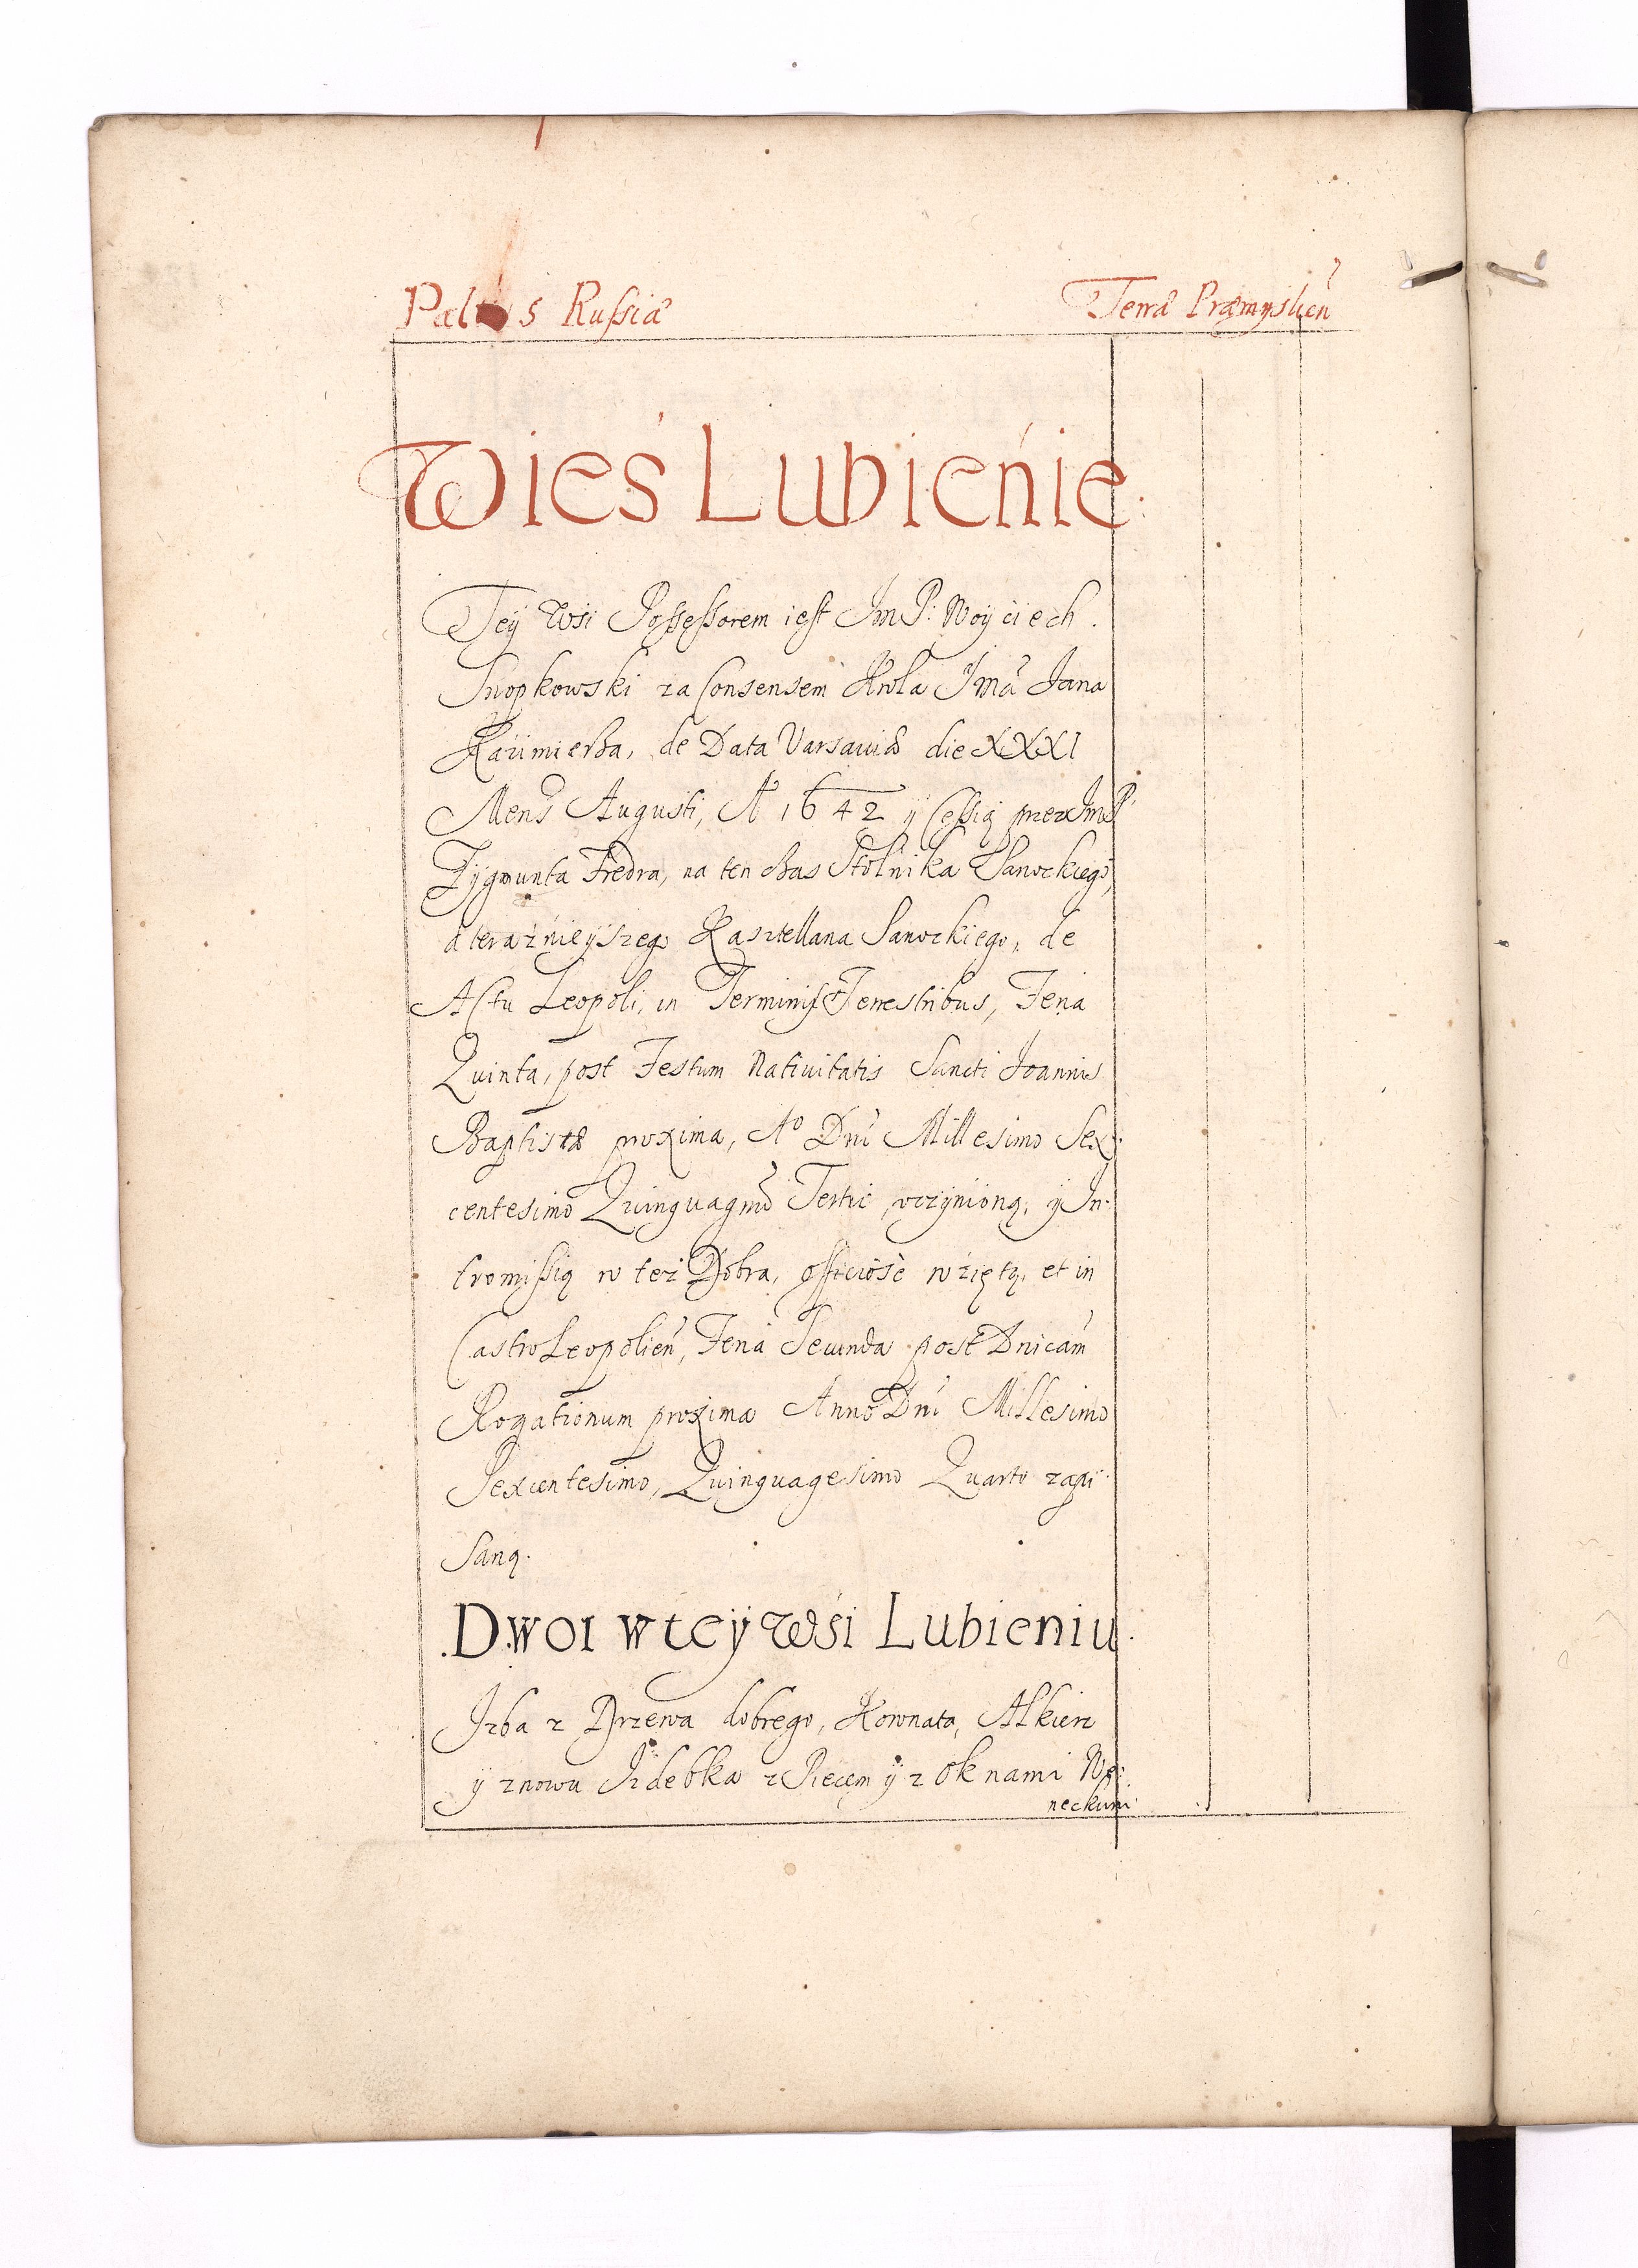 Palt s Russiæ
Terræ Præmyslien
Wieś Lubienie
Tey Wsi Possessorem iest Jm P: Woyciech
Snopkowski za Consensem Krola Jmã Jana
Kazimierza, de Data Varsaviæ die XXXI
Mens Augusti, A 1642 ÿ Cessią przez Jm P
Zygmunta Fredra, na ten czas Stolnika Sanockiego,
a teraznieÿszego Kasztellana Sanockiego, de
Actu Leopoli, in Terminis Terrestribus, Feria
Quinta, post Festum Natiuitatis Sancti Joannis
Baptistæ proxima, Ao Dni Millesimo Sex
centesimo Quinquagmo Tertio, vczÿnioną, ÿ In
tromissią w też Dobra, officiose wzięta, et in
Castro Leopolien, Feria Secunda post Dnicam
Rogationum proxima Anno Dni Millesimo
Sexcentesimo, Quinquagesimo Quarto zapi
saną.
Dwor w teÿ Wśi Lubieniu
Jzba z Drzewa dobrego, Komnata, Alkierz
ÿ znowu Jzdebka z Piecem ÿ z Oknami We
neckimi